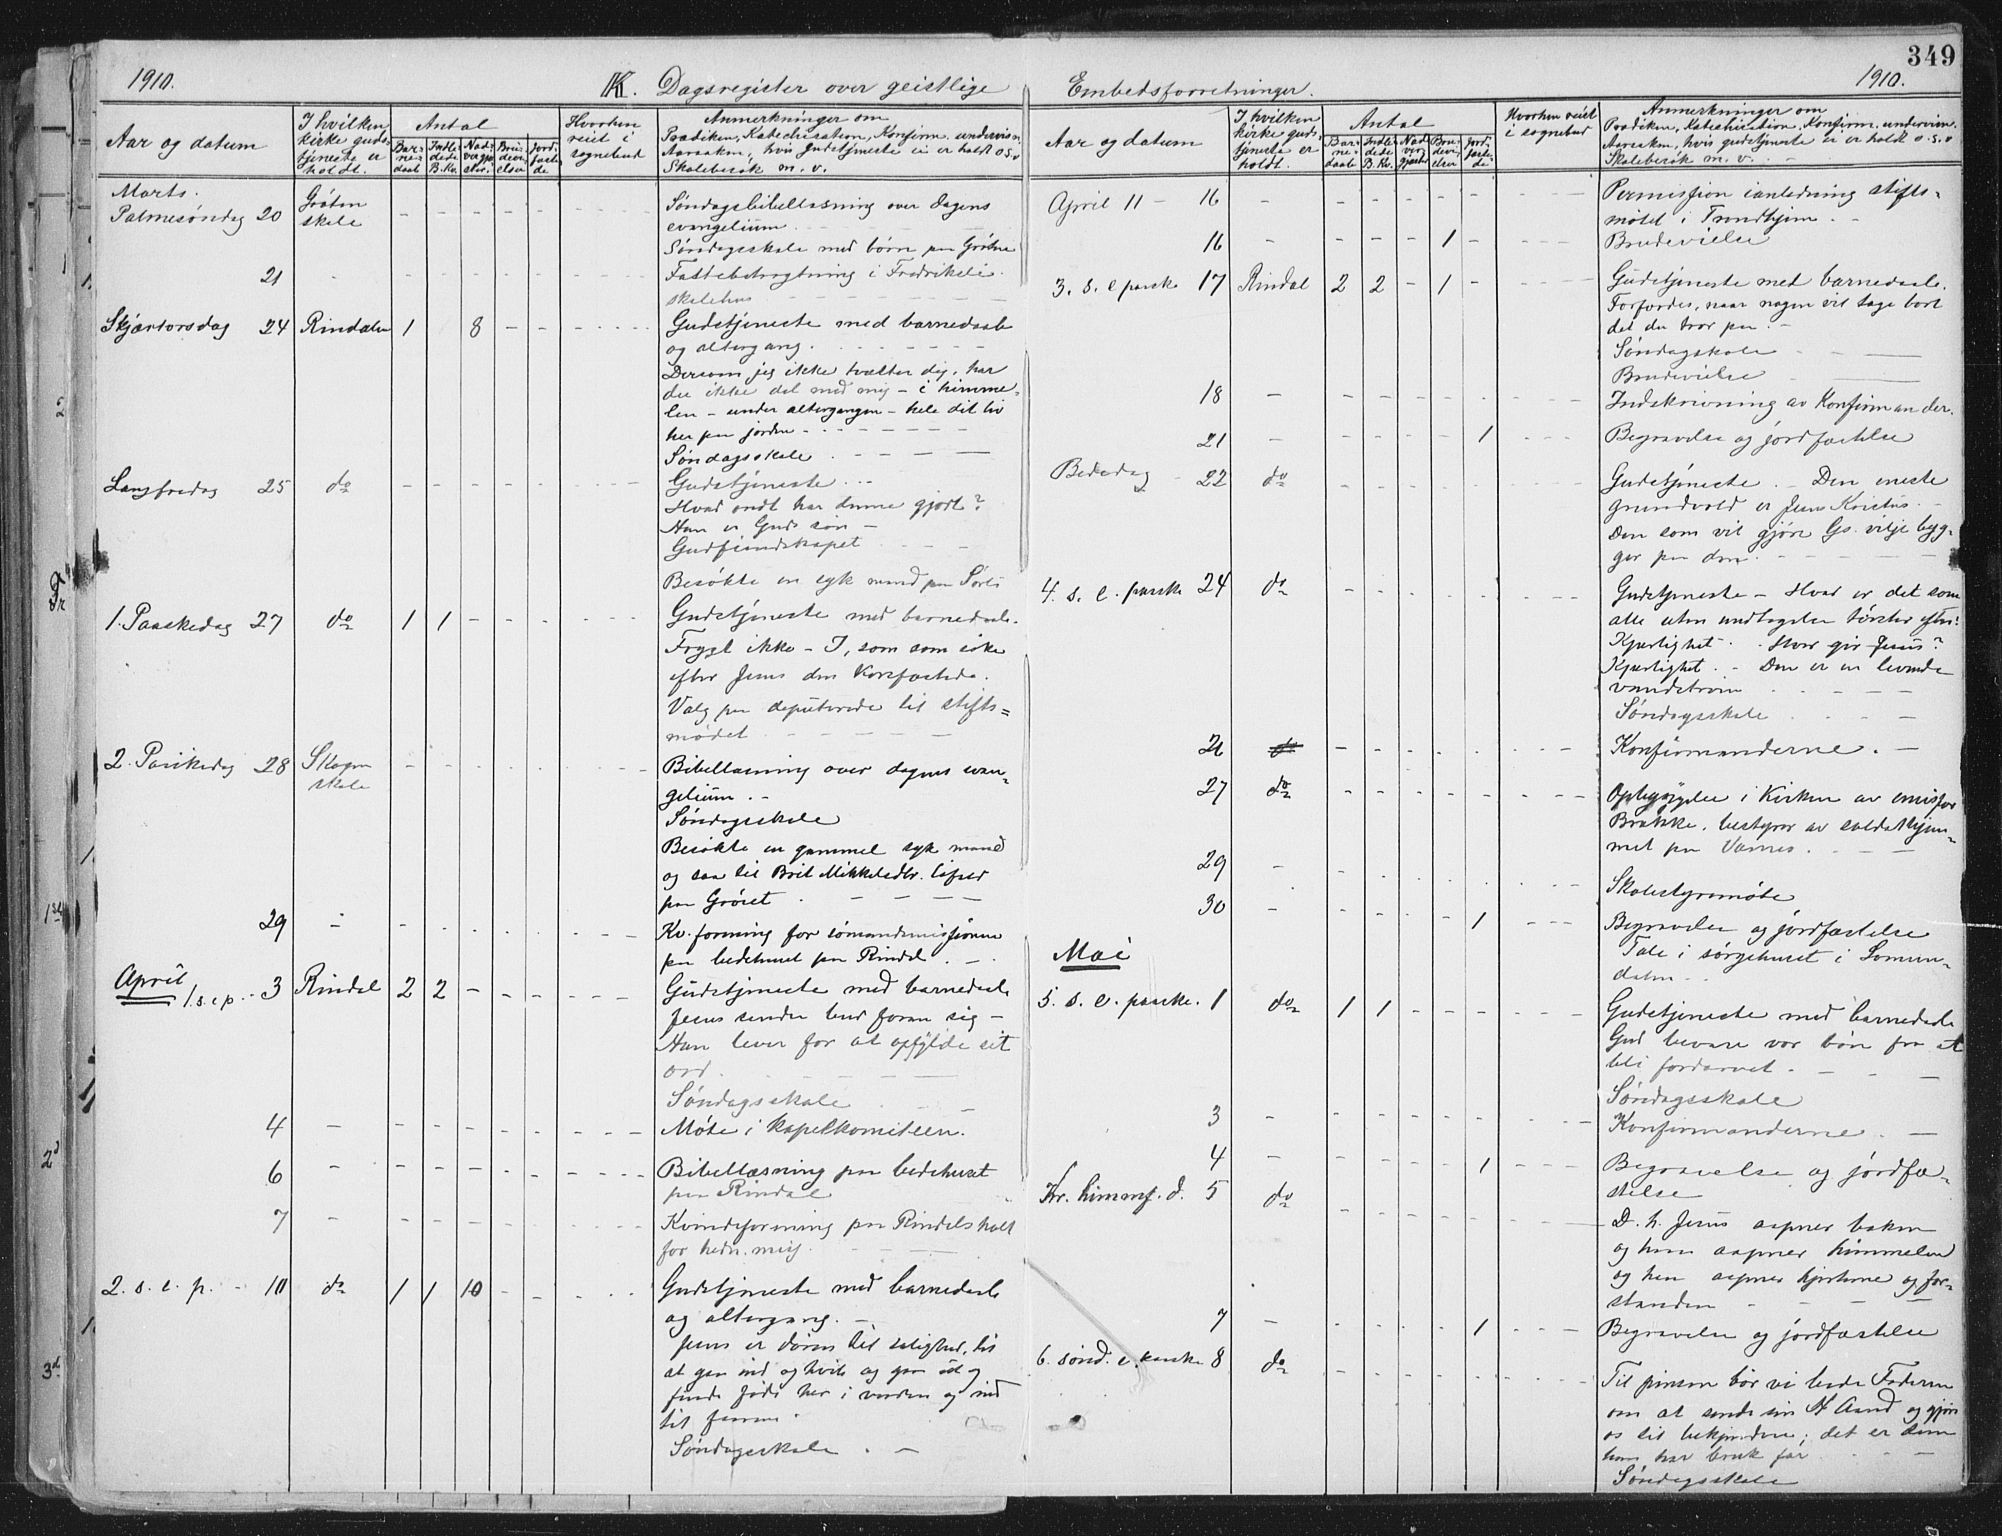 349
1910. K. Dagsregister over geistlige Embedsforretninger. 1910.
Aar og datum
I hvilken
kirke guds-
tjeneste er
holdt.
Antal
Bar-
ne-
daab
Indle-
dede
B. Kv.
Nad-
vergje-
ster.
Bru-
devi-
elser
Jord-
fæste-
de
Hvorhen
reist i
sognebud
Anmerkninger om
Prædiken, Katechisation, Konfirm. undervisn.
Aarsaken, hvis Gudstjeneste ei er holdt o.s.v
Skolebesøk m. v.
Marts.
Palmesøndag 20 Grøten
skole
Søndagsbibellæsning over dagens
evangelium.
Søndagsskole med børn paa Grøtne
21 Fastebetragtning i Fredrikslii
skolehus
Skjærtorsdag 24 Rindalen 1 8 Gudstjeneste med barnedaab
og altergang.
Dersom jeg ikke tvætter dig, har
du ikke del med mig – i himme-
len – under altergangen – hele dit liv
her paa jorden
Søndagsskole
Langfredag 25 do Gudstjeneste
Hvad ondt har denne gjort?
Han er Guds søn –
Gudfiendskapet
Besøkte en syk mand paa Sørli
1. Paaskedag 27 do 1 1 Gudstjeneste med barnedaab.
Frygt ikke – I, som som søke
efter Jesus den Korsfæstede.
Valg paa deputerede til stifts=
mødet
2. Paaskedag 28 Skogen
skole
Bibellæsning over dagens evan-
gelium.
Søndagsskole
Besøkte en gammel syk mand
og saa til Brit Mikkelsdtr.
paa Grøset
29 Kv.forening for sømandsmissionen
paa bedehuset paa Rindal.
April
1. s. e p. 3 Rindal 2 2 Gudstjeneste med barnedaab
Jesus sender bud foran sig –
Han lever for at opfylde sit
ord.
Søndagsskole
4 Møte i kapelkomiteen.
6 Bibellæsning paa bedehuset
paa Rindal
7 Kvindeforening paa Rindalsholt
for hedn. miss.
2. s. e. p. 10 do 1 1 10 Gudstjeneste med barnedaab
og altergang.
Jesus er døren til salighed, til
at gaa ind og hvile og gaa ud og
finde føde her i verden og ind
til
Søndagsskole
Aar og datum
I hvilken
kirke guds-
tjeneste er
holdt.
Antal
Bar-
ne-
daab
Indle-
dede
B. Kv.
Nad-
ver-
gjester
Bru-
devi-
elser
Jord-
fæste-
de
Hvorhen reist
i sognebud
Anmerkninger om
Prædiken, Katechisation, Konfirm. undervisn.
Aarsaken, hvis gudstjeneste ei er holdt o.s.v
Skolebesøk m. v.
April 11 – 16 Permission ianledning stifts=
mødet i Trondhjem.
16 1 Brudevielse
3. s. e paaske 17 Rindal 2 2 1 Gudstjeneste med barnedaab.
Forfærdes, naar nogen vil tage bort
det du tror paa.
Søndagskole
Brudevielse
18 Indskrivning av Konfirmander.
21 1 Begravelse og jordfæstelse
Bededag 22 do Gudstjeneste. – Den eneste
grundvold er Jesus Kristus
Den som vil gjøre Gs. vilje byg-
ger paa den.
4. s. e. paaske 24 do Gudstjeneste – Hvad er det som
alle uten undtagelse tørster efter?
Kjærlighet. Hvor gir Jesus?
Kjærlighet. – Den er en levende
vandstrøm
Søndagsskole
26 do Konfirmanderne.
27 do Opbyggelse i Kirken av emissær
Brække, bestyrer av soldathjem-
met paa Værnes.
29 Skolestyremøte
30 1 Begravelse og jordfæstelse
Tale i sørgehuset i Lomun-
dalen
Mai
5. s. e. paaske. 1 do 1 1 Gudstjeneste med barnedaab
Gud bevare vor bøn fra at
bli fordærvet.
Søndagsskole
3 Konfirmanderne.
4 1 Begravelse og jordfæ-
stelse
Kr. himmf. d. 5 do D. h. Jesus aapner boken
og han aapner himmelen
og han aapner hjerterne og for-
standen
7 1 Begravelse og jordfæstelse
6. sønd. e. paaske 8 do Til pinsen bør vi bede Faderen
om at sende sin H Aand og gjøre
os til bekjendere; det er dem
han har bruk for
Søndagsskole